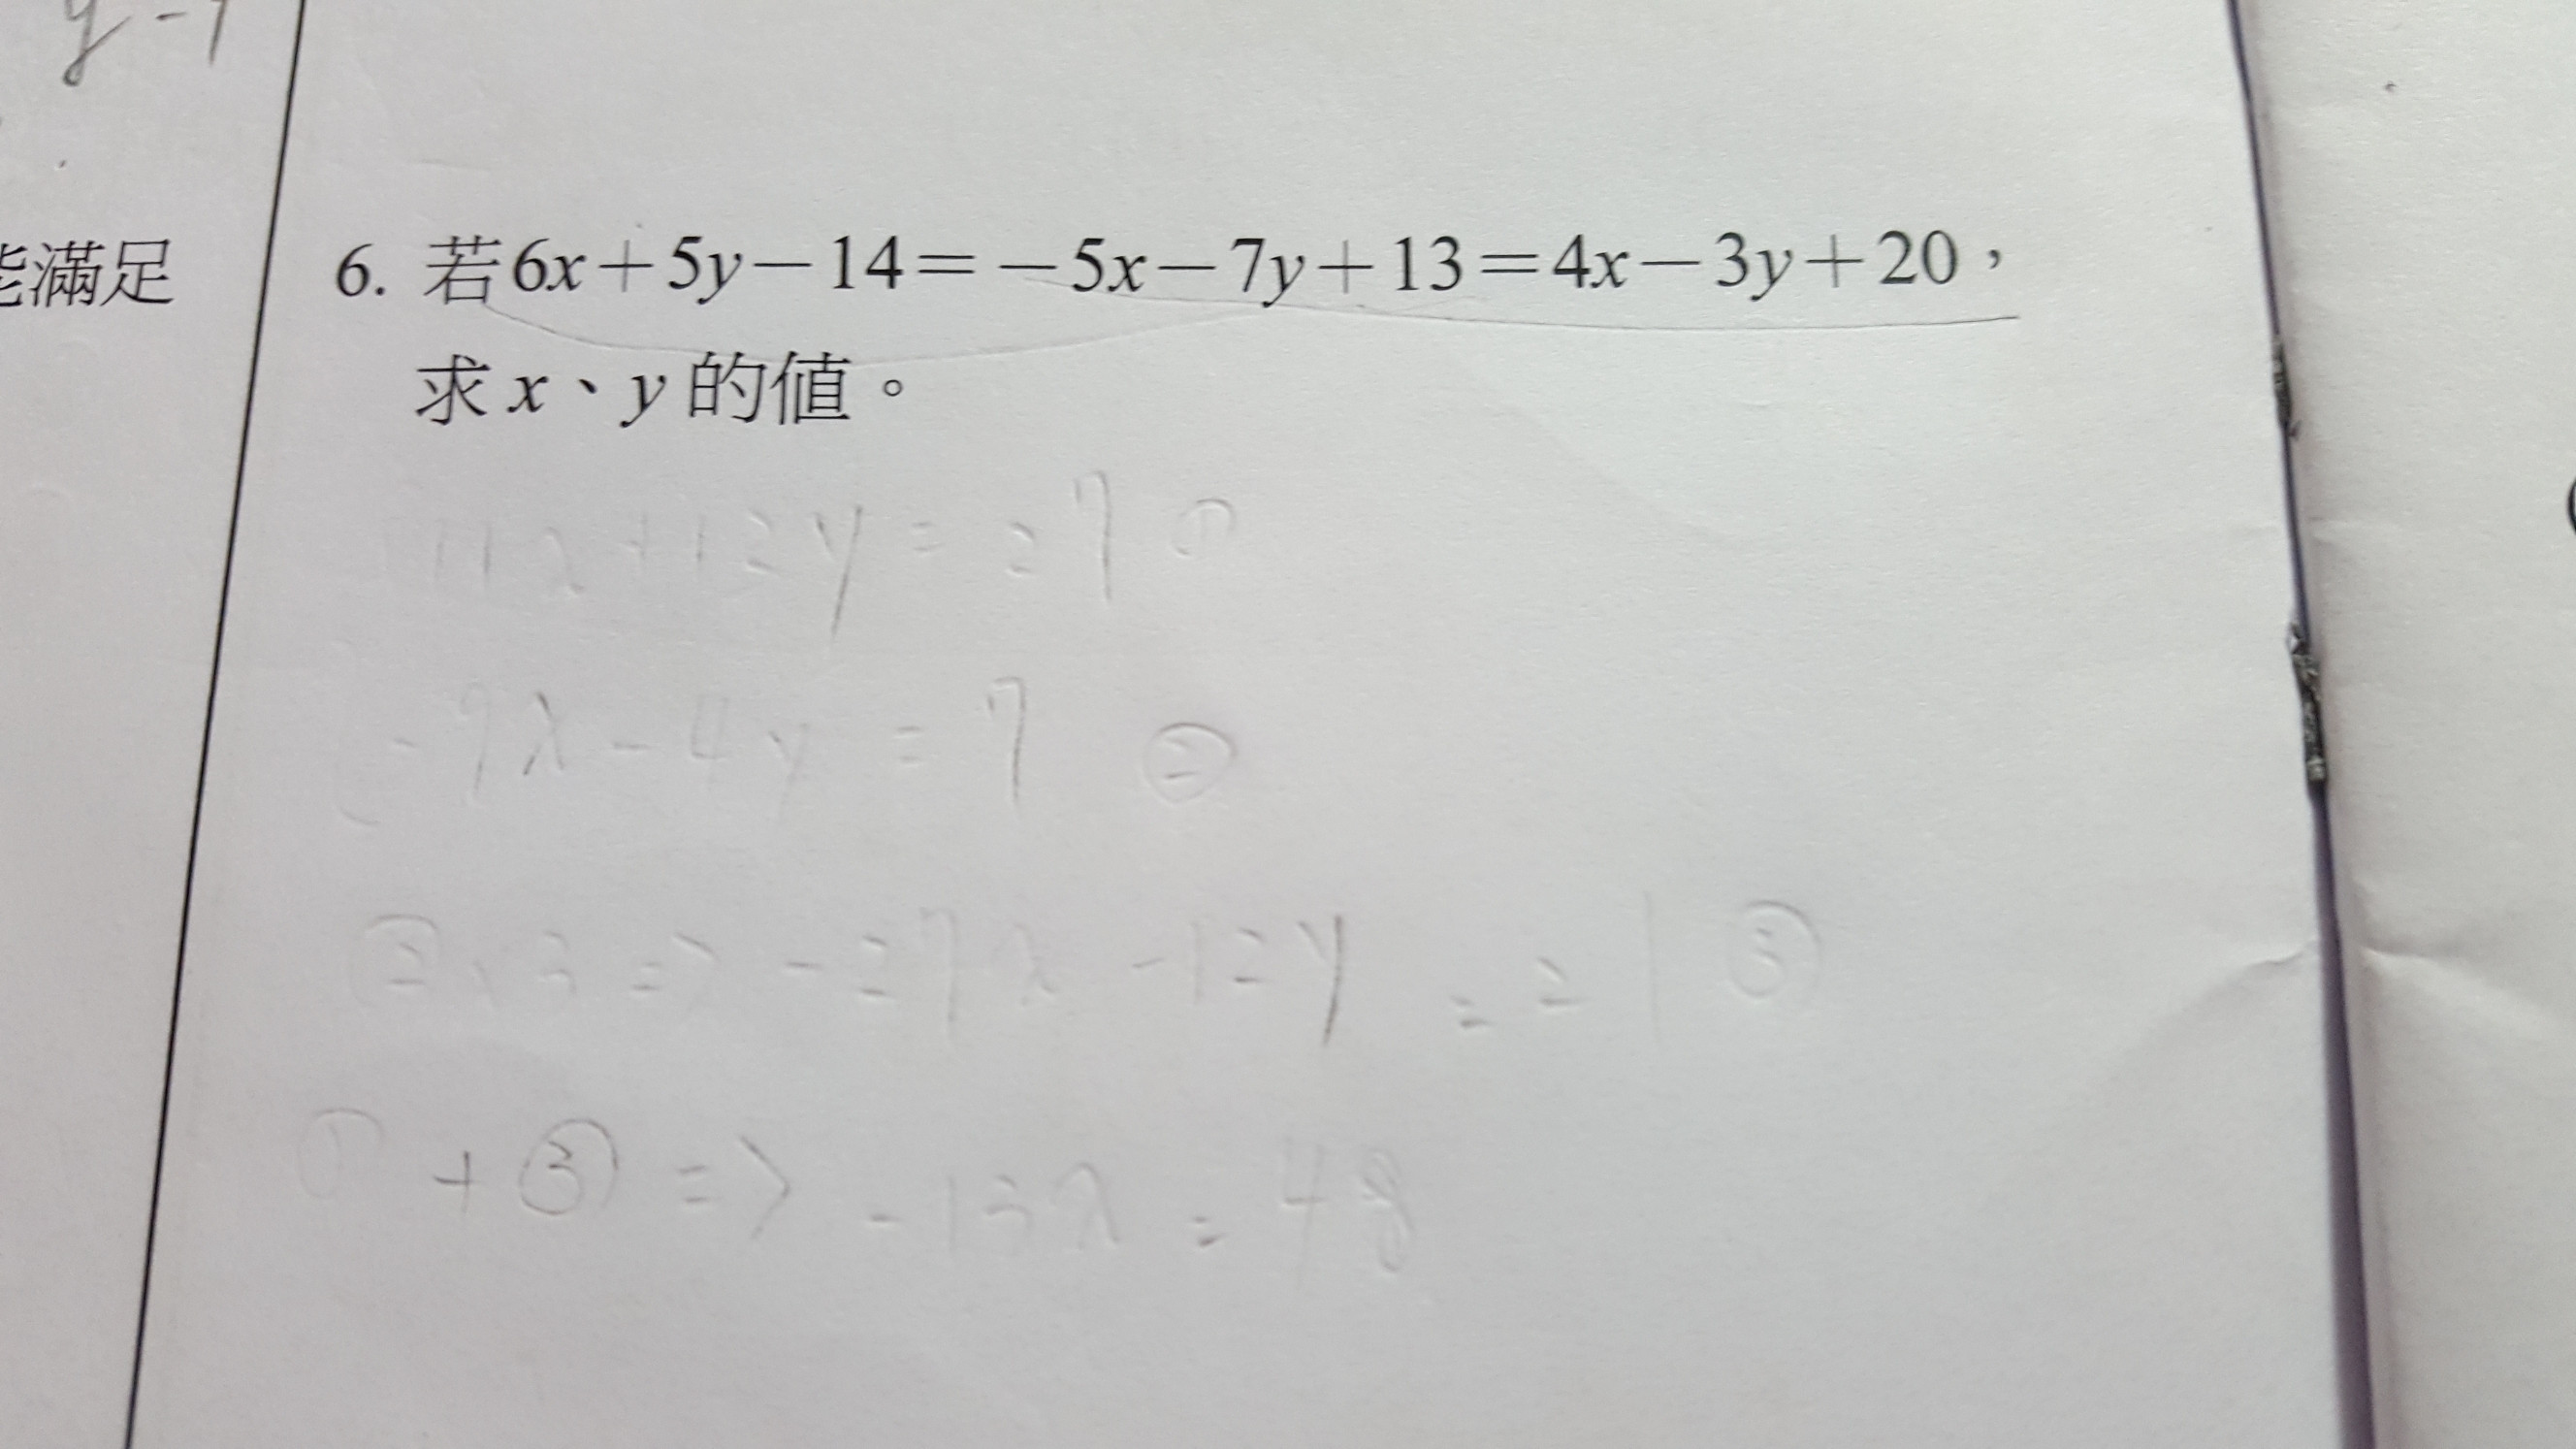 y-7
能滿足
6. 若6x+5y-14=-5x-7y+13=4x-3y+20,
求x、y的值。
11x+12y=27 ①
-9x-4y=7 ②
②×3=>-27x-12y=21 ③
①+③=>-13x=48